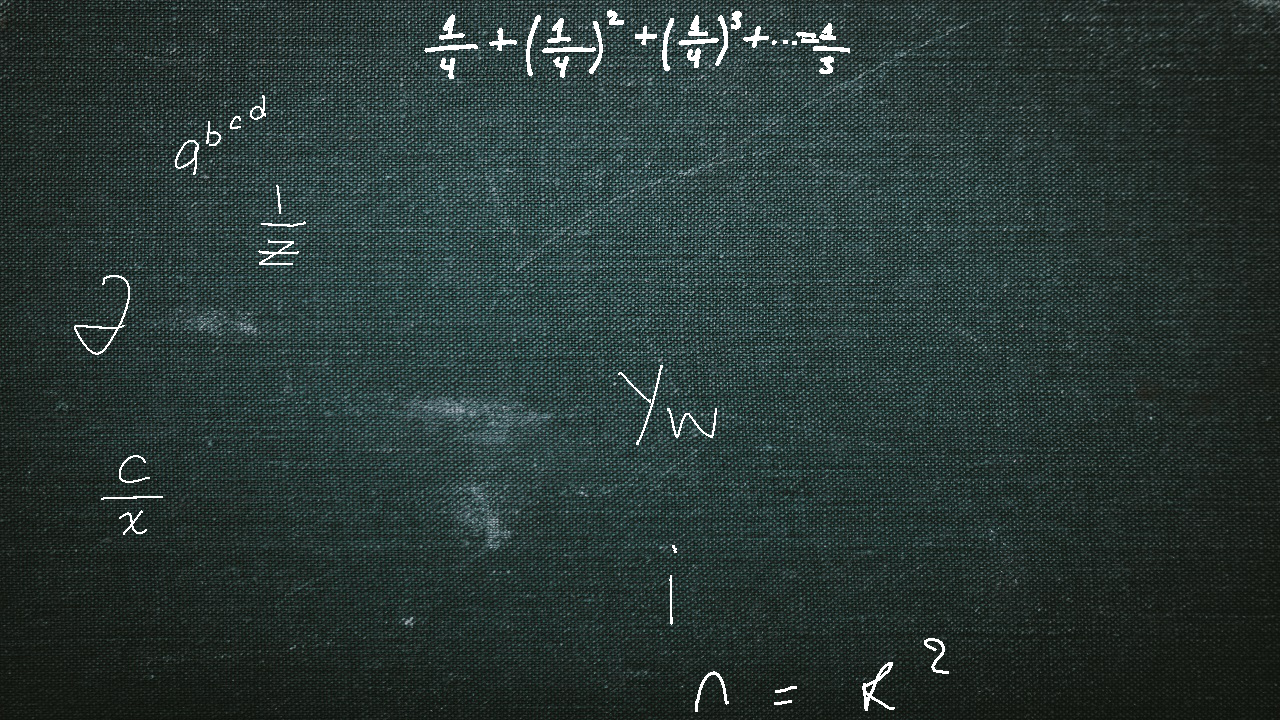 1/4 + (1/4)² + (1/4)³ + ... = 1/3
a^b^c^d
1/z
c/x
y_w
i
n = k²